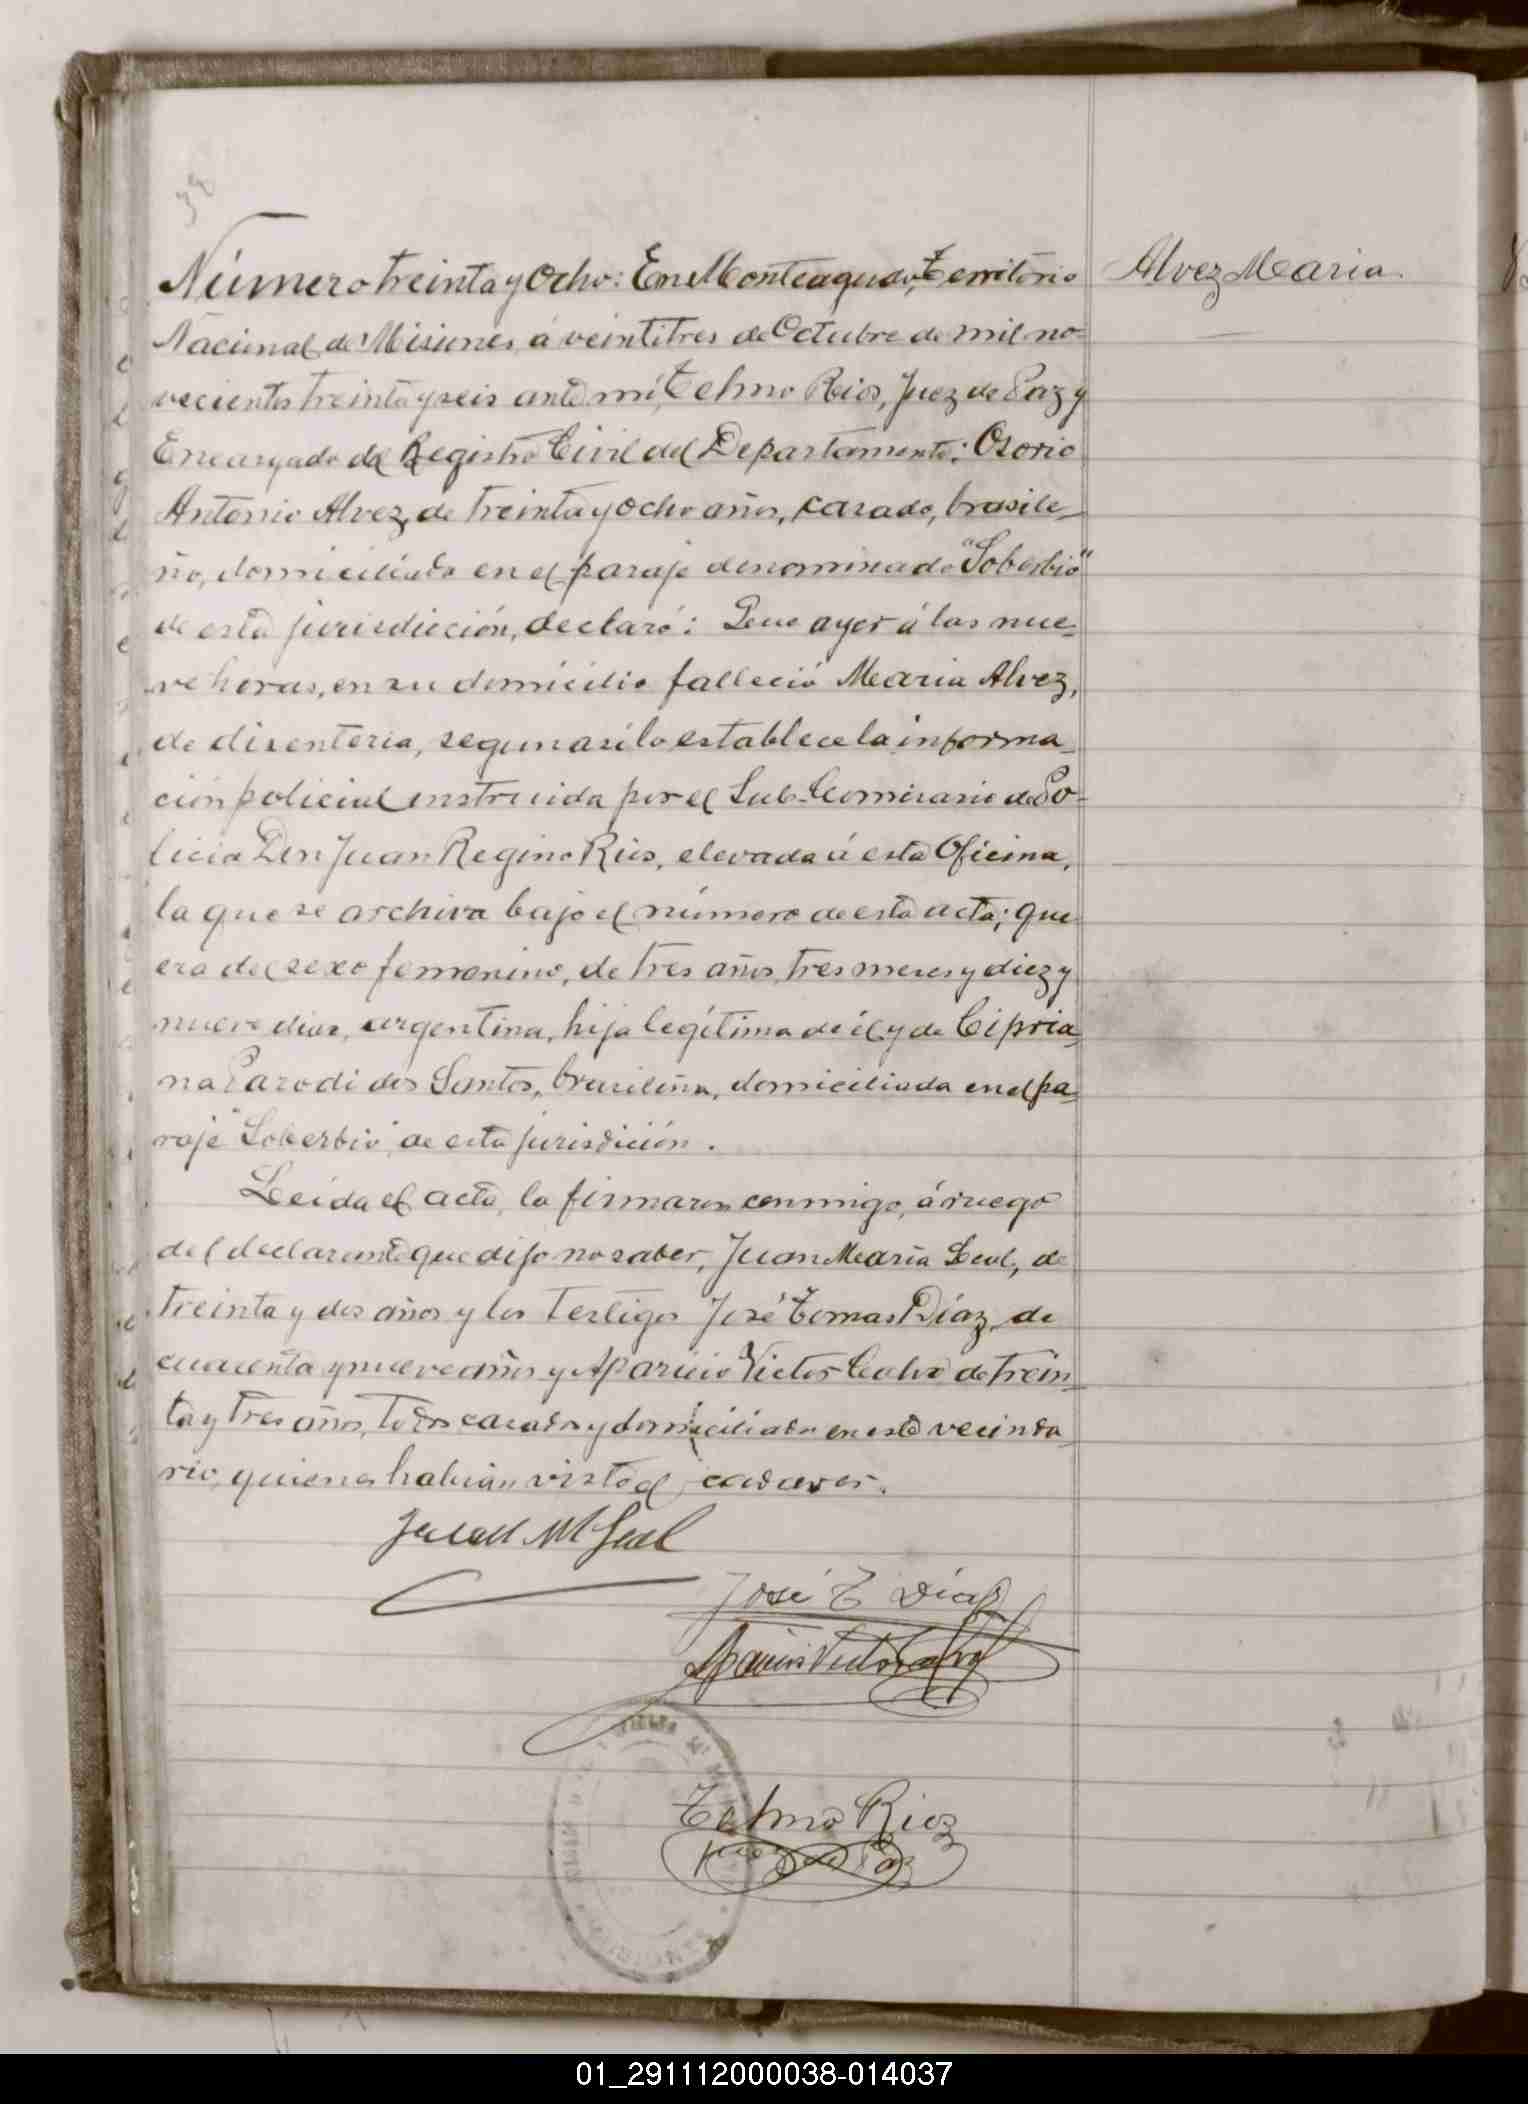 38
Número treinta y Ocho: En Monteagudo, Territorio
Alvez Maria.
Nacional de Misiones, á veintitres de Octubre de mil no-
vecientos treinta y seis ante mí, Telmo Rios, Juez de Paz y
Encargado del Registro Civil del Departamento: Osorio
Antonio Alvez, de treinta y ocho años, casado, brasile-
ño, domiciliado en el paraje denominado "Soberbio"
de esta jurisdicción, declaró: Que ayer á las nue-
ve horas, en su domicilio falleció Maria Alvez,
de disenteria, segun asi lo establece la informa-
ción policial instruida por el Sub-Comisario de Po-
licia Don Juan Regino Rios, elevada á esta Oficina,
la que se archiva bajo el número de esta acta; que
era del sexo femenino, de tres años, tres meses y diez y
nueve dias, argentina, hija legítima de él y de Cipria-
na Parodi dos Santos, brasileña, domiciliada en el pa-
raje "Soberbio" de esta jurisdición.
Leida el acta, la firmaron conmigo, á ruego
del declarante que dijo no saber, Juan Maria, de
treinta y dos años y los testigos José Tomas Díaz, de
y nueve años y Aparicio Victor Calvo de trein-
ta y tres años, todos casados y domiciliados en este vecinda-
rio, quienes habian visto el cadaver.
Juan M
José T Díaz
Aparicio Victor Calvo
Telmo Rios
Juez de Paz
01_291112000038-014037